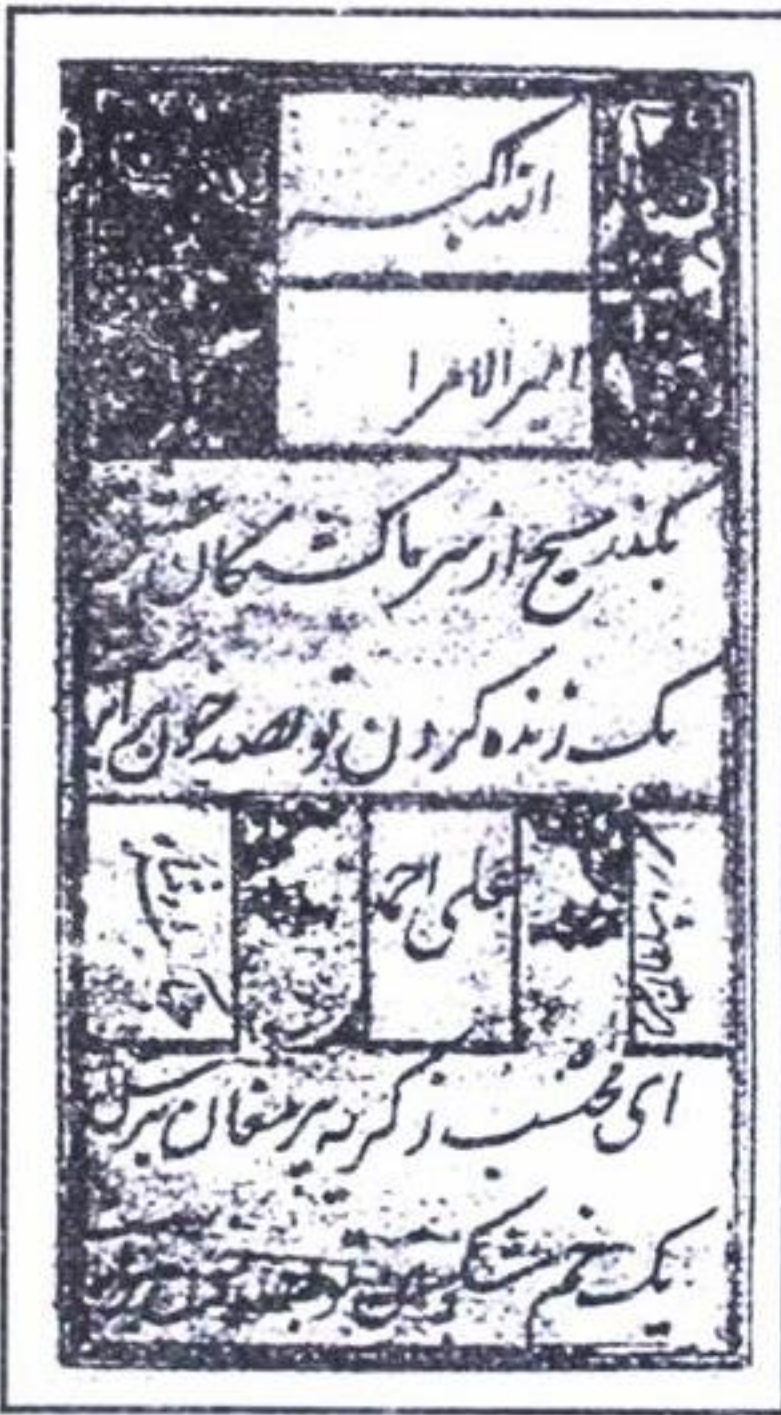 الله اکبر
امیر الامرا
بگذر مسیح از سر ما کشتگان عشق
یک زنده کردن تو بصد خون برابر
علی احمد
ای محتسب ز گریه پیر مغان بترس
یک خم شکستن تو بصد خون برابر